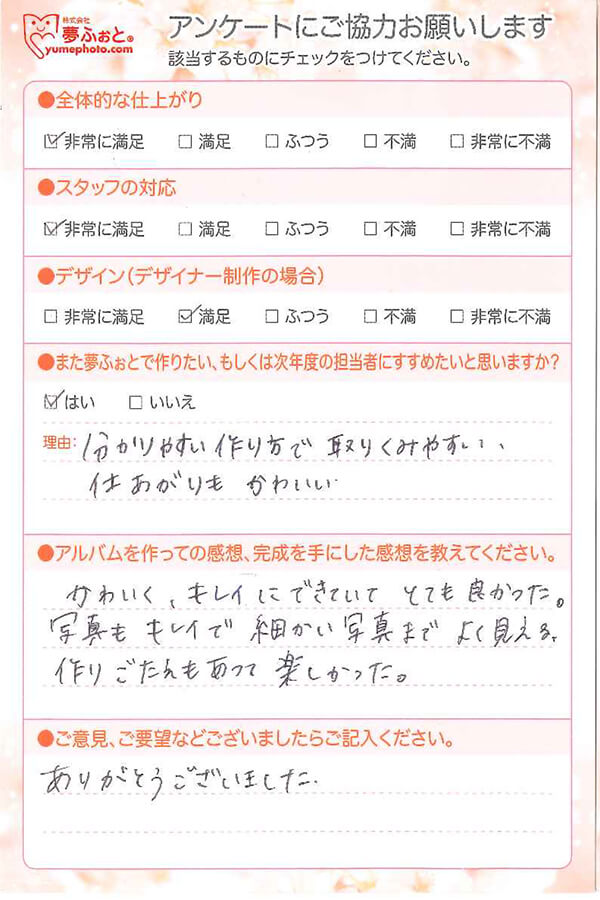 株式会社
夢ふぉと®
yumephoto.com
アンケートにご協力お願いします
該当するものにチェックをつけてください。
●全体的な仕上がり
☑非常に満足 □ 満足 □ ふつう □ 不満 □ 非常に不満
●スタッフの対応
☑非常に満足 □ 満足 □ ふつう □ 不満 □ 非常に不満
●デザイン(デザイナー制作の場合)
□ 非常に満足 ☑満足 □ ふつう □ 不満 □ 非常に不満
●また夢ふぉとで作りたい、もしくは次年度の担当者にすすめたいと思いますか?
☑はい □ いいえ
理由: 分かりやすい作り方で取りくみやすい、
仕あがりもかわいい
●アルバムを作っての感想、完成を手にした感想を教えてください。
かわいく、キレイにできていてとても良かった。
写真もキレイで細かい写真までよく見える。
作りごたえもあって楽しかった。
●ご意見、ご要望などございましたらご記入ください。
ありがとうございました.